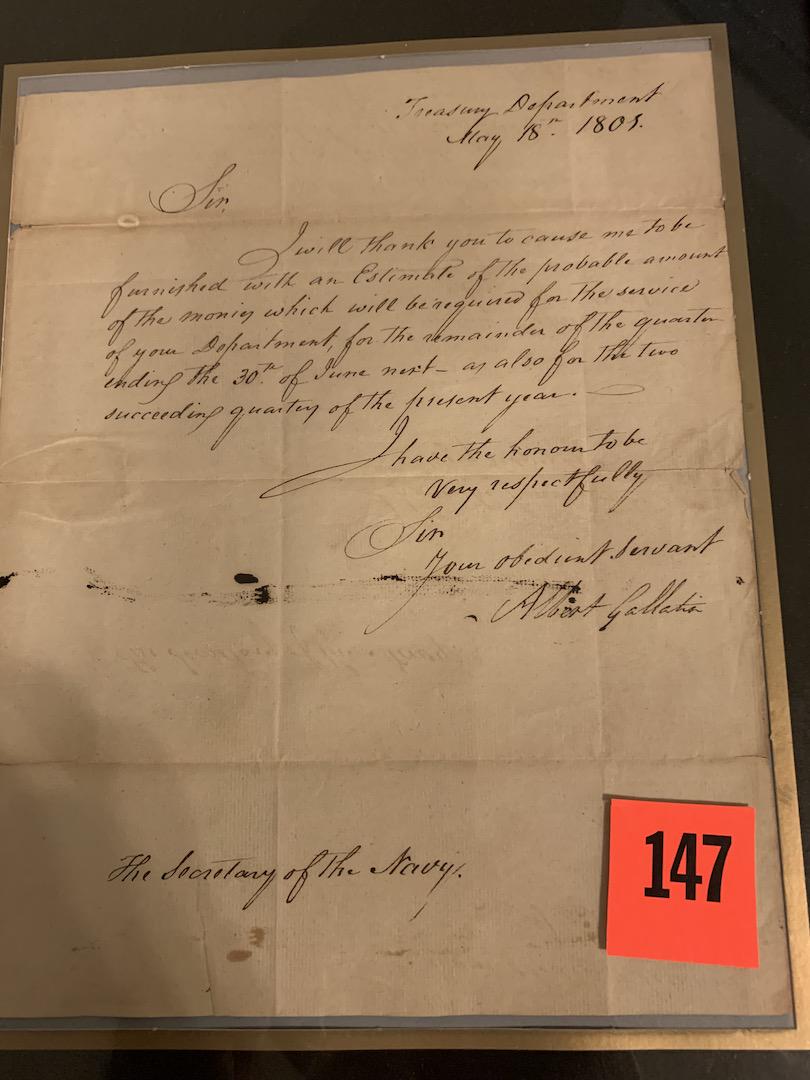 Treasury Department
May 18th. 1801.
Sir,
I will thank you to cause me to be
furnished with an Estimate of the probable amount
of the monies which will be required for the service
of your Department, for the remainder of the quarter
ending the 30th. of June next - as also for the two
succeeding quarters of the present year. -
I have the honour to be
Very respectfully
Sir
Your obedient Servant
Albert Gallatin
The Secretary of the Navy.
147